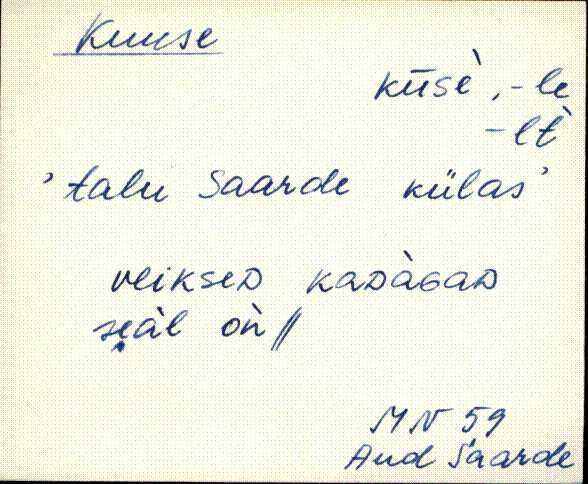 Kuuse
kūsè, -le
-lt̀
'talu Saarde külas'
veiksed kadàɢad
seäl òn //
MN 59
Aud Saarde